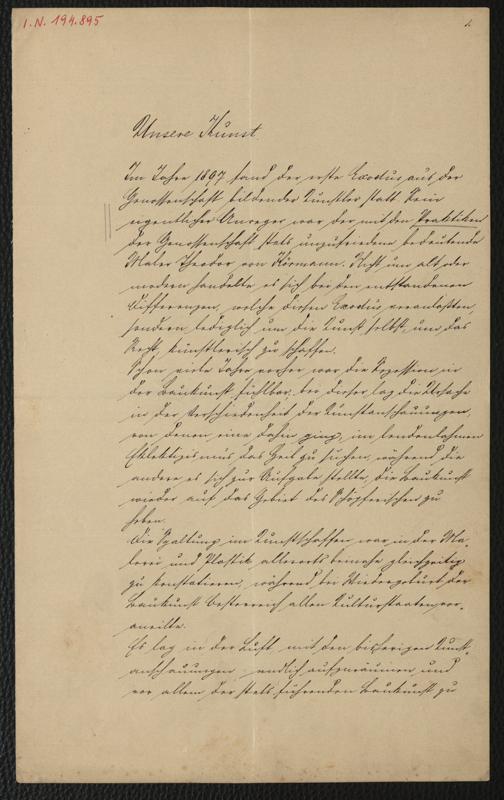 I.N. 194.895
Unsere Kunst
Im Jahre 1897 fand der erste Exodus aus der
Genossenschaft bildender Künstler statt. Sein
eigentlicher Anreger war der mit den Praktiken
der Genossenschaft stets unzufriedene bedeutende
Maler Theodor von Hörmann. Nicht um alt oder
modern handelte es sich bei den entstandenen
Differenzen, welche diesen Exodus veranlaßten,
sondern lediglich um die Kunst selbst, um das
Recht, künstlerisch zu schaffen.
Schon viele Jahre vorher war die Sezession in
der Baukunst fühlbar, bei dieser lag die Ursache
in der Verschiedenheit der Kunstanschauungen,
von denen eine dahin ging, im lendenlahmen
Eklektizismus das Heil zu suchen, während die
andere es sich zur Aufgabe stellte, die Baukunst
wieder auf das Gebiet des Schöpferischen zu
heben.
Die Spaltung im Kunstschaffen war in der Ma-
lerei und Plastik allerorts beinahe gleichzeitig
zu konstatieren, während bei Wiedergeburt der
Baukunst Oesterreich allen Kulturstaaten vor-
aneilte.
Es lag in der Luft mit den bisherigen Kunst-
anschauungen endlich aufzuräumen und
vor allem der stets führenden Baukunst zu